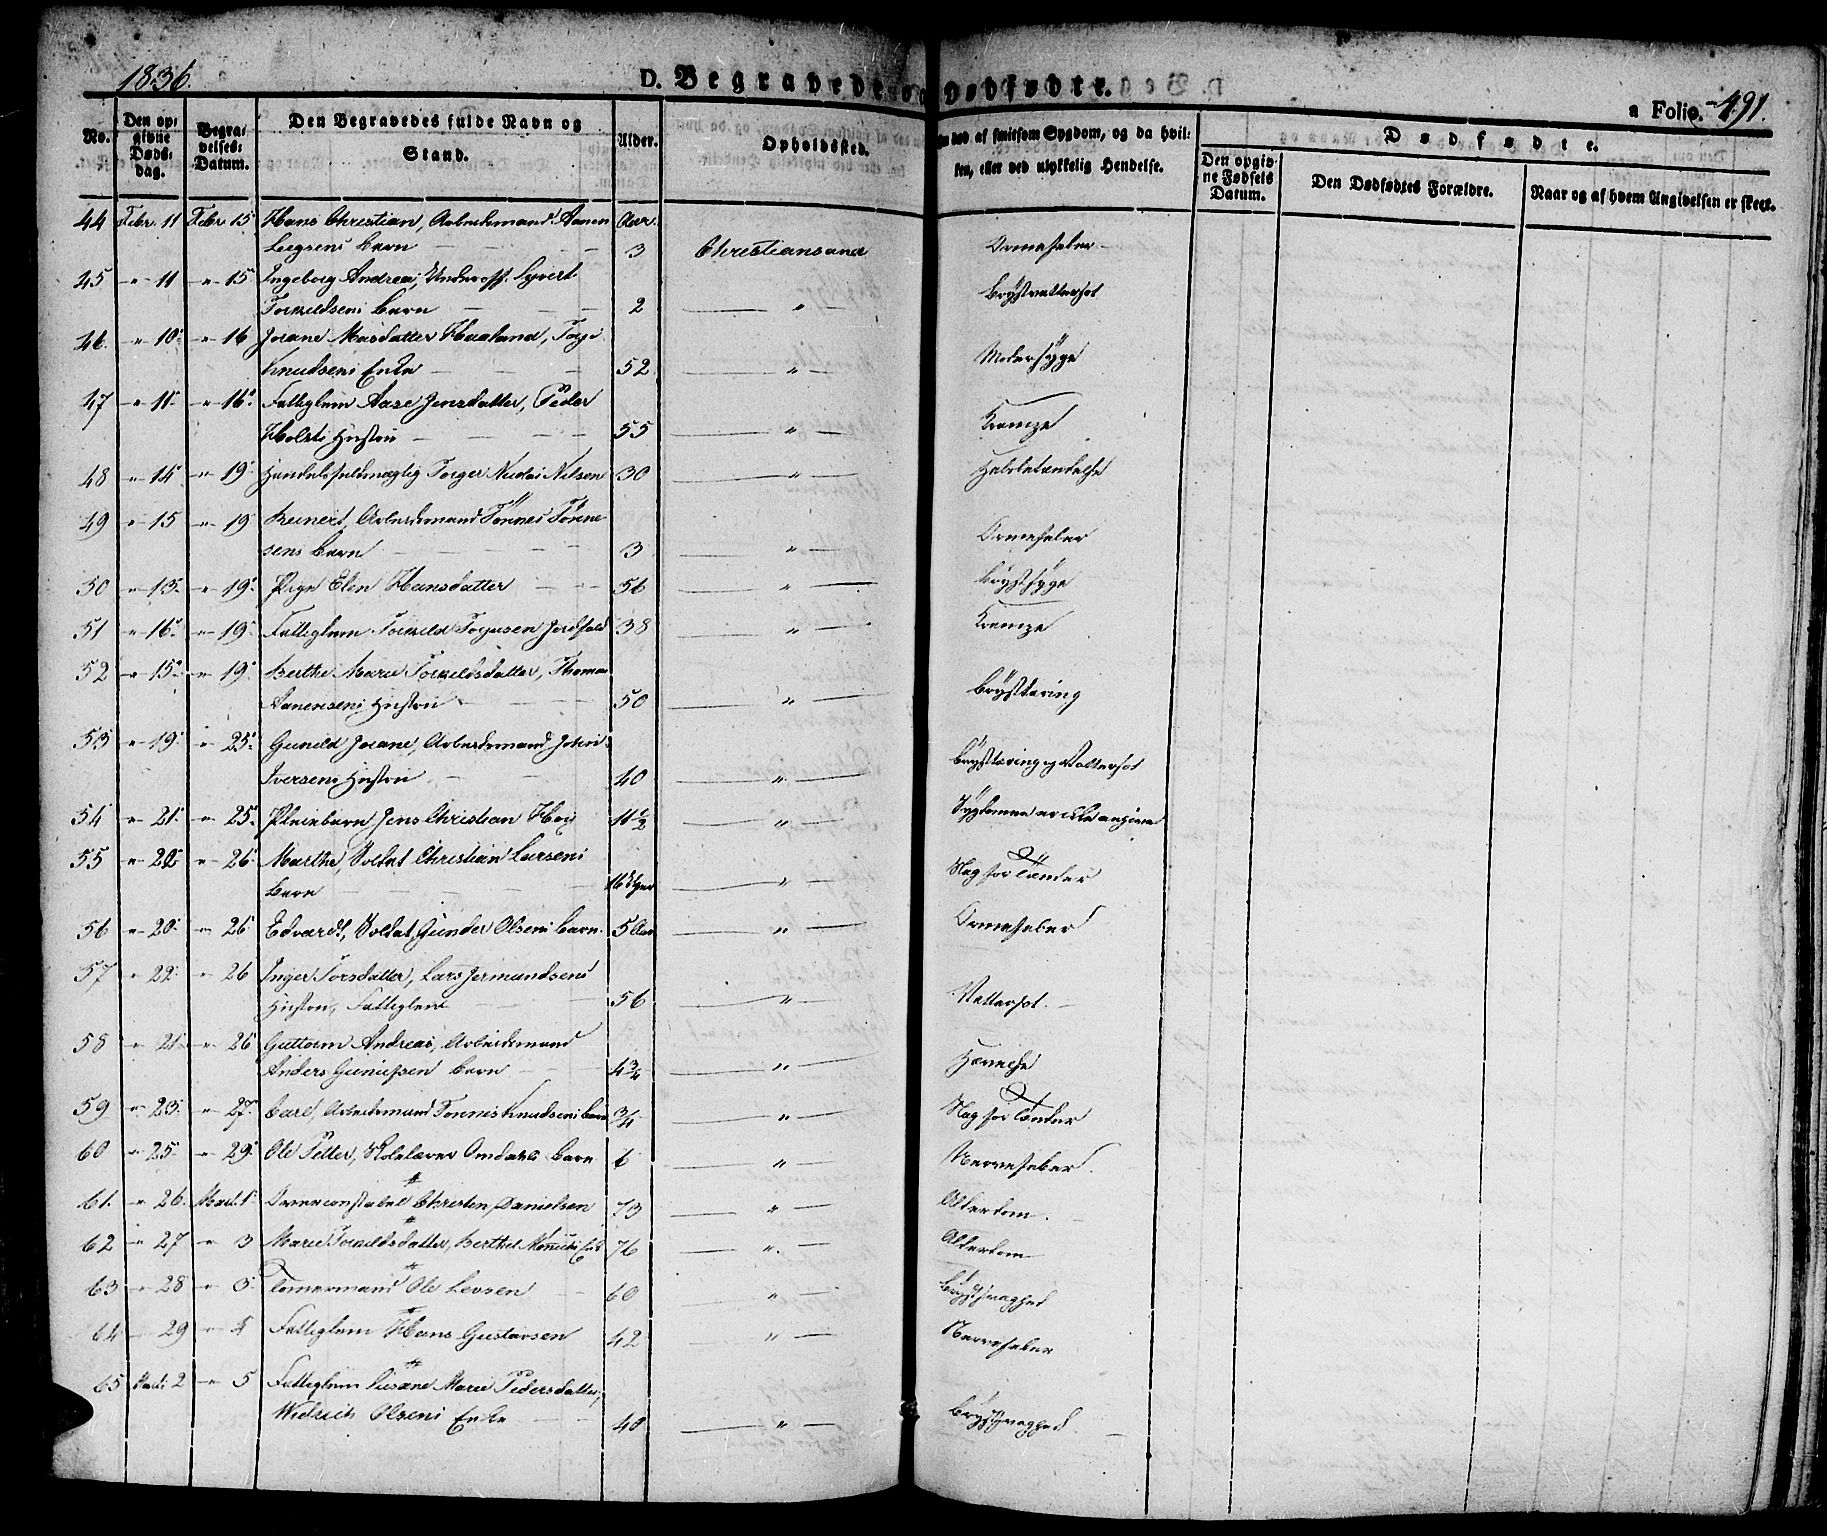 1836.
D. Begravede og Dødfødte.
a Folio. 491.
No. Den opgivne Dødsdag. Begravelses-Datum. Den Begravedes fulde Navn og Stand. Alder. Opholdssted. død af smitsom Sygdom, og da hvilken, eller ved ulykkelig Hendelse. Dødfødte.
Den opgivne Fødsels Datum. Den Dødfødtes Forældre. Naar og af hvem Angivelsen er skeet.
44 Febr. 11 Febr 15 Hans Christian, Arbeidsmand Aanen Aar.
Barn 3 Christiansand Ormefeber
45 " 11 " 15 Ingeborg Andrea, Underoff. Syvert
Torkildsens Barn 2 " Brystvattersot
46. " 10 " 16 Josane Haaland, Torje
Knudsens Enke 52 " Modersyge
47 " 11 " 16 Fattiglem Aase Jensdatter, Peder
Holsts Hustru 55 " Krampe
48 " 14 " 19 Handelsfuldmægtig Torger Nicolai Nilsen 30 " Halsbetændelse
49 " 15 " 19 Reinert, Arbeidsmand Tønnes Tønne
sens Barn 3 " Ormefeber
50 " 13 " 19 Pige Elen Hansdatter 56 " Brystsyge
51 " 16 " 19 Fattiglem Torkild Torjusen 38 " Krampe
52 " 15 " 19 Berthe Marie Torkildsdatter, Thomas
Aanensens Hustru 50 " Brysttæring
53 " 19 " 25 Gunild Josane, Arbeidsmand John
Iversens Hustru 40 " Brysttæring og Vattersot
54 " 21 " 25 Pleiebarn Jens Christian 11 1/2 " Sygdommen er ikke angiven
55 " 22 " 26 Marthe, Soldat Christian Larsens
Barn 16 Uger " Slag for Tænder
56 " 20 " 26 Edvard, Soldat Gunder Olsens Barn 5 Aar " Ormefeber
57 " 22 " 26 Inger Torsdatter, Lars Jermundsens
Hustru, Fattiglem 56 " Vattersot.
58 " 21 " 26 Guttorm Andreas, Arbeidsmand
Anders Barn 4 3/4 "
59 " 23 " 27 Carl, Arbeidsmand Tønnes Knudsens Barn 3/4 " Slag for Tænder
60 " 25 " 29 Ole Petter, Skolelærer Omdahls Barn 6 " Nervefeber.
61. " 26. Marts 1 Overconstabel Christen Danielsen 73 " Alderdom.
62 " 27 " 3 Marie Torkildsdatter, Berthel 76 " Alderdom
63 " 28 " 3. Tømermand Ole Levsen 60 " Brystsvaghed
64 " 29 " 4 Fattiglem Hans Gustavsen 42 " Nervefeber
65 Marts 2 " 5 Fattiglem Susane Marie Pedersdatter,
Olsens Enke 40 " Brystsvaghed